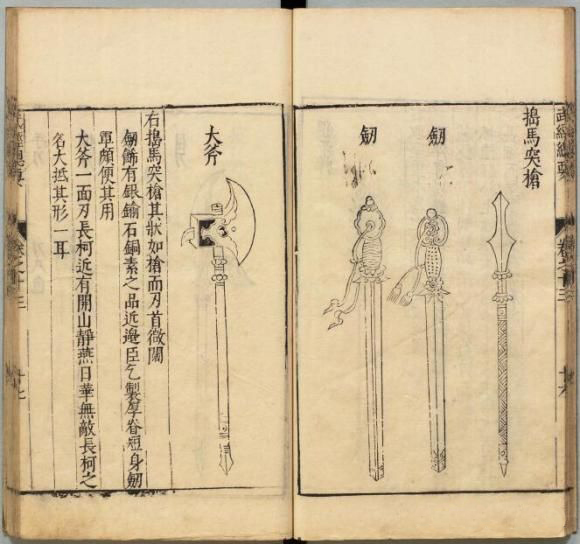 武經總要
卷之十三
搗馬突槍
劒
劒
大斧
右搗馬突槍其狀如槍而刃首微闊
劒飾有銀鍮石銅素之品近邊臣乞製厚脊短身劒
軍頗便其用
大斧一面刃長柯近有開山靜燕日華無敵長柯之
名大抵其形一耳